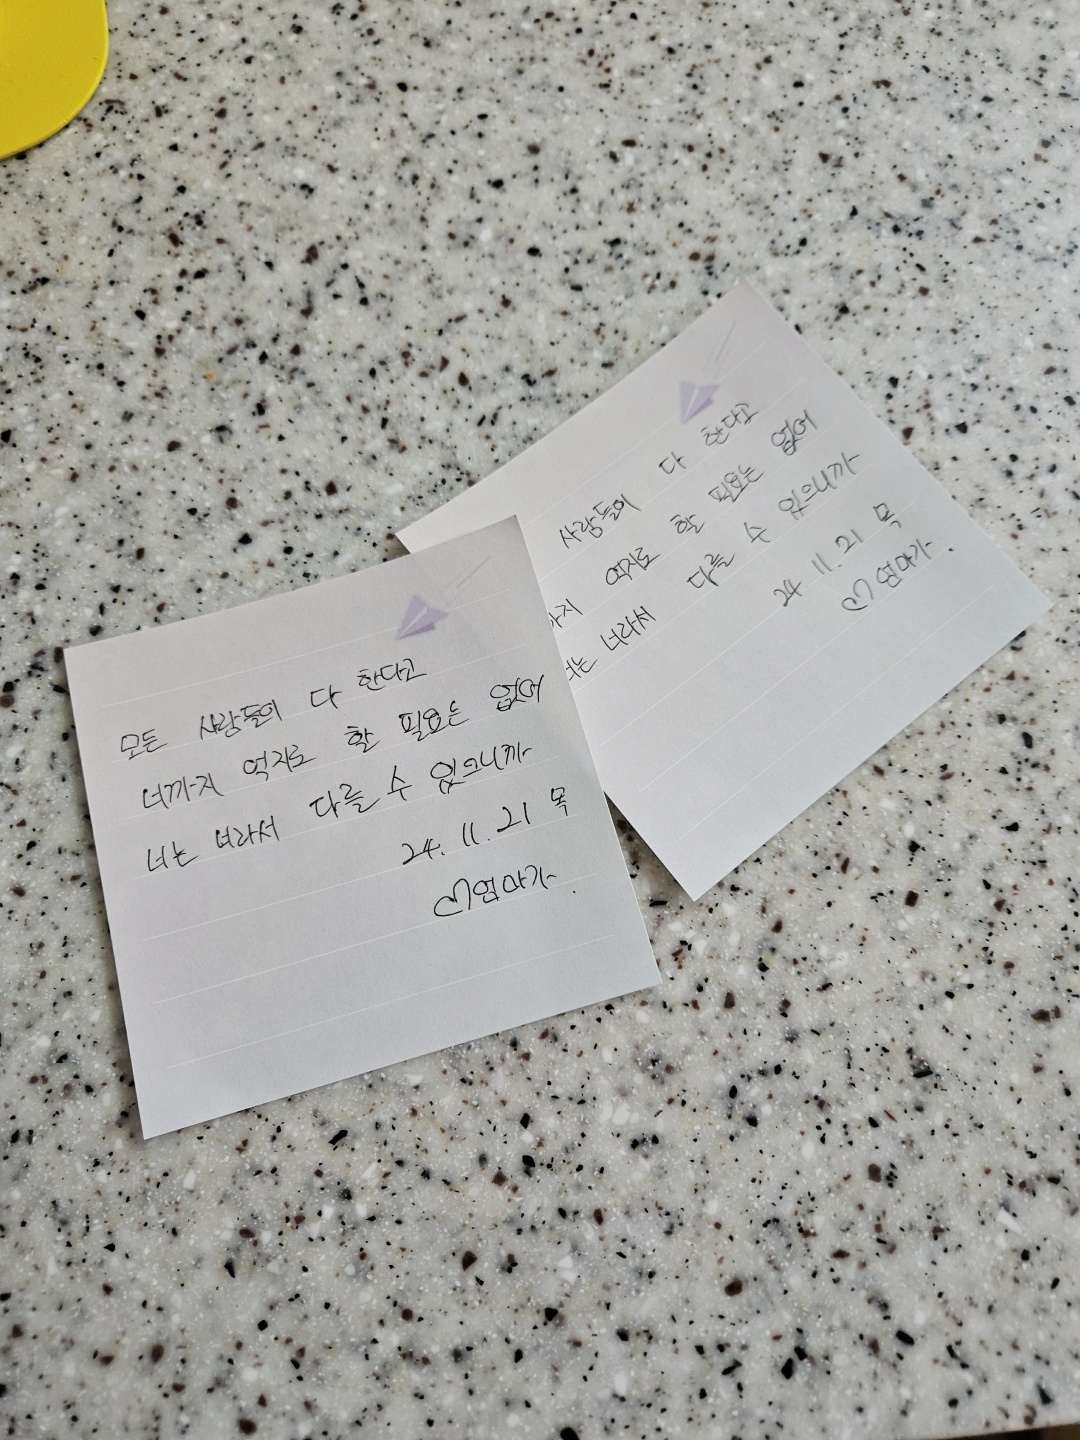 모든 사람들이 다 한다고
너까지 억지로 할 필요는 없어
너는 너라서 다를 수 있으니까
24. 11. 21 목
♡엄마가.
사람들이 다 한다고
까지 억지로 할 필요는 없어
너는 너라서 다를 수 있으니까
24 11. 21 목
♡엄마가.